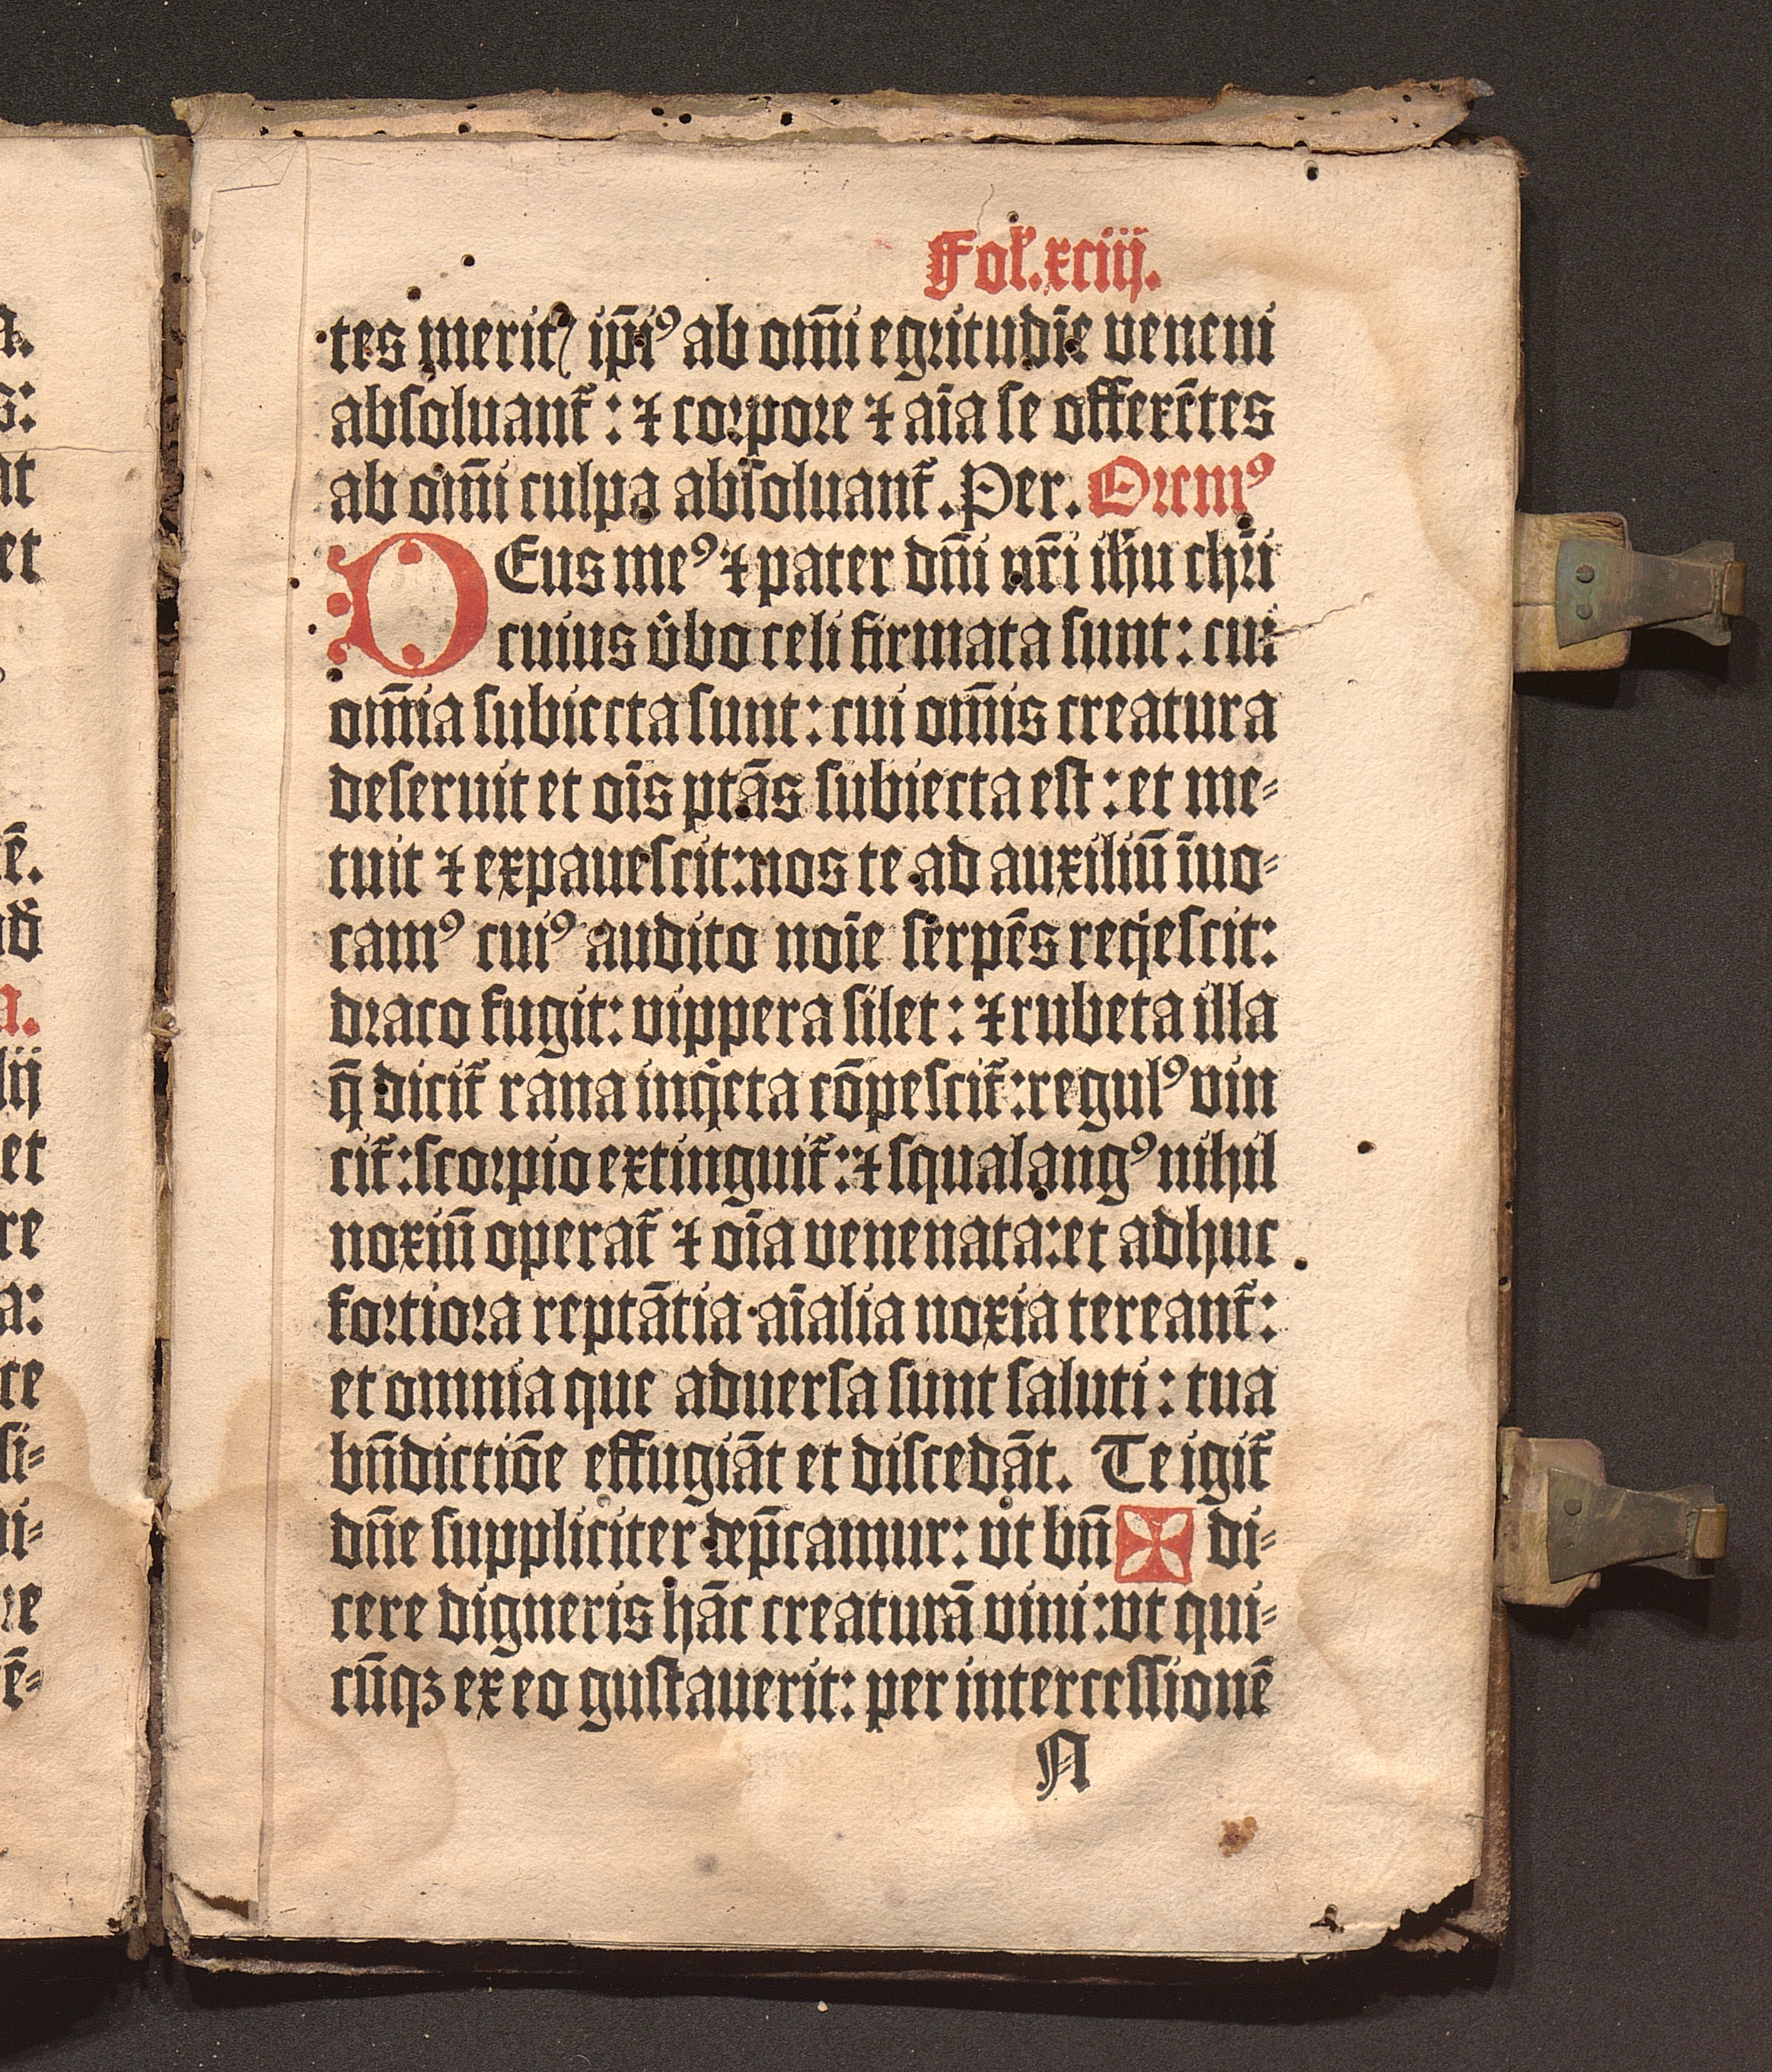 Fol̛.xciij.
tes meritꝭ ip̄iꝰ ab om̄i egꝛitudīe veneni
abſoluant᷑ : ⁊ coꝛpoꝛe ⁊ aīa ſe offerētes
ab om̄i culpa abſoluant᷑. Per. Oꝛemꝰ
DEus meꝰ ⁊ pater dn̄i nr̄i ih̄u chꝛ̄i
cuius v̉bo celi firmata ſunt: cui
om̄ia ſubiecta ſunt: cui om̄is creatura
deſeruit et oīs ptās ſubiecta eſt : et me⸗
tuit ⁊ expaueſcit: nos te ad auxiliū īuo⸗
camꝰ cuiꝰ audito noīe ſerpēs reqͥeſcit:
dꝛaco fugit: vippera ſilet : ⁊ rubeta illa
q̄ dicit᷑ rana inqͥeta cōpeſcit᷑: regulꝰ vin
cit᷑: ſcoꝛpio extinguit᷑: ⁊ ſqualangꝰ nihil
noxiū operat᷑ ⁊ oīa venenata: et adhuc
foꝛtioꝛa reptātia aīalia noxia tereant᷑:
et omnia que aduerſa ſunt ſaluti : tua
bn̄dictiōe effugiāt et diſcedāt. Te igit᷑
dn̄e ſuppliciter dep̄camur: vt bn̄ ✠ di⸗
cere digneris hāc creaturā vini: vt qui⸗
cūqꝫ ex eo guſtauerit: per interceſſionē
N
a.
s:
at
et
ē.
a.
lij
et
re
a:
ſi⸗
ni⸗
ꝛe
ē⸗